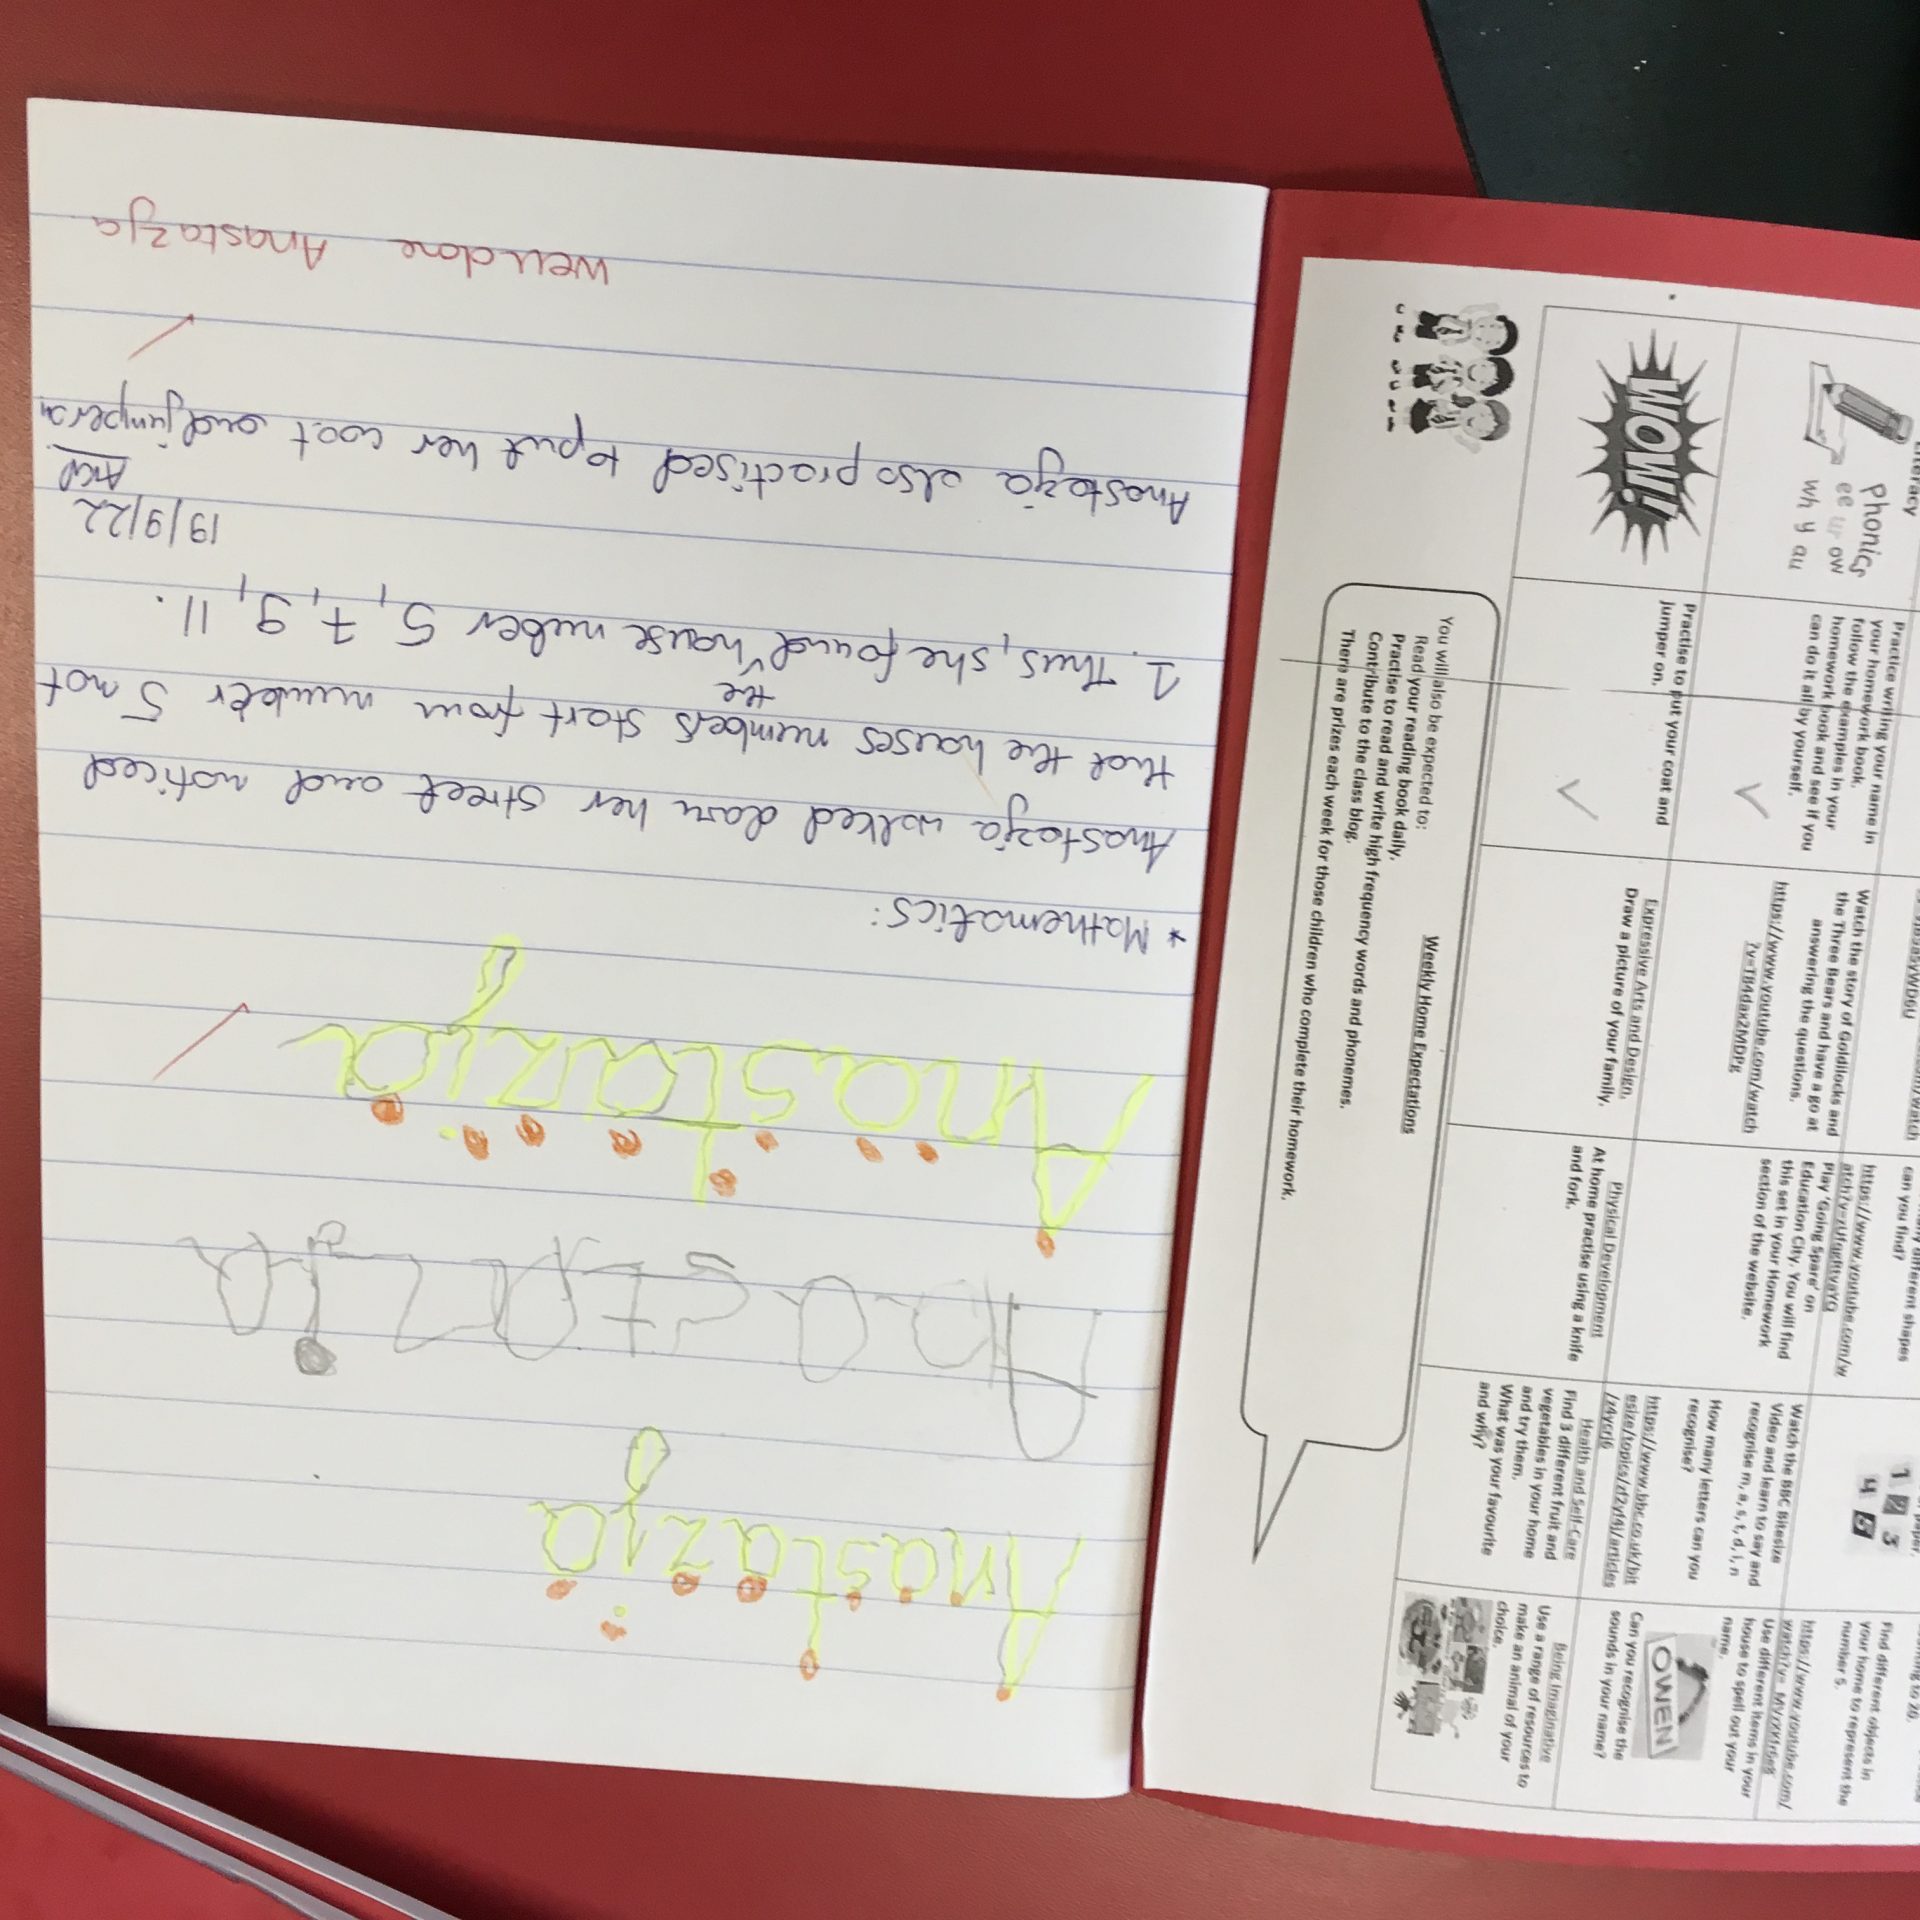 Anastazja
Anastazja
Anastazja
* Mathematics:
Anastazja walked down her street and noticed
that the houses numbers start from number 5 not
1. Thus, she found the house number 5, 7, 9, 11.
19/9/22
Anastazja also practised to put her coat and jumper on
Well done Anastazja
Literacy
Phonics
ee ur ow
wh y au
Practice writing your name in
your homework book.
follow the examples in your
homework book and see if you
can do it all by yourself.
Watch the story of Goldilocks and
the Three Bears and have a go at
answering the questions.
https://www.youtube.com/watch
?v=TB4dax2MDPg
can you find?
Play 'Going Spare' on
Education City. You will find
this set in your Homework
section of the website.
1 2 3
4 5
Watch the BBC Bitesize
Video and learn to say and
recognise m, a, s, t, d, i, n
How many letters can you
recognise?
https://www.bbc.co.uk/bit
esize/topics/zf2yf4j/articles
/z4ycrj6
Find different objects in
your home to represent the
number 5.
Use different items in your
house to spell out your
name.
OWEN
Can you recognise the
sounds in your name?
WOW!
Practise to put your coat and
jumper on.
Expressive Arts and Design.
Draw a picture of your family.
Physical Development
At home practise using a knife
and fork.
Health and Self-Care
Find 3 different fruit and
vegetables in your home
and try them.
What was your favourite
and why?
Being Imaginative
Use a range of resources to
make an animal of your
choice.
Weekly Home Expectations
You will also be expected to:
Read your reading book daily.
Practise to read and write high frequency words and phonemes.
Contribute to the class blog.
There are prizes each week for those children who complete their homework.